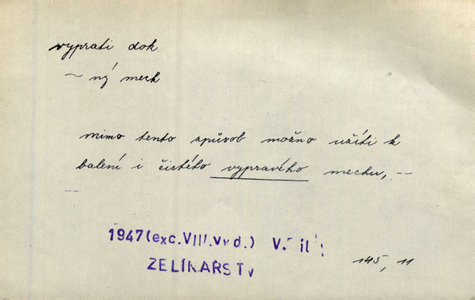 vyprati dok.
~ ný mech
mimo tento způsob možno užíti k
balení i čistého vypravého mechu, —
—
1947 (exc. VIII. vyd.)
ZELINÁŘSTV
145, 11